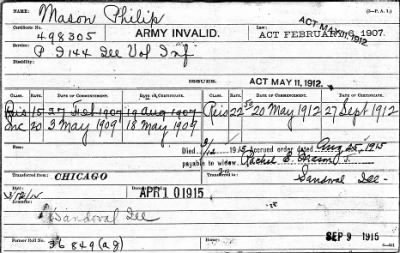 NAME: Mason Philip
Certificate No. 498305 ARMY INVALID. ACT FEBRUARY 6, 1907. ACT MAY 11, 1912.
Service: P I 144 Ill Vol Inf (3—P.A.)
Disability:
ISSUES. ACT MAY 11, 1912.
CLASS. RATE. DATE OF COMMENCEMENT. DATE OF CERTIFICATE. CLASS. RATE. DATE OF COMMENCEMENT. DATE OF CERTIFICATE.
Reis 15 27 Feb 1907 19 Aug 1907 Reis 22 50 20 May 1912 27 Sept 1912
Inc 20 3 May 1909 18 May 1909
Died 1915 Accrued order dated Aug 25, 1915
payable to widow. Rachel E. Mason
Transferred from: CHICAGO Transferred to: Sandoval Ill
APR 10 1915
Sandoval Ill
Former Roll No. 36849 SEP 9 1915